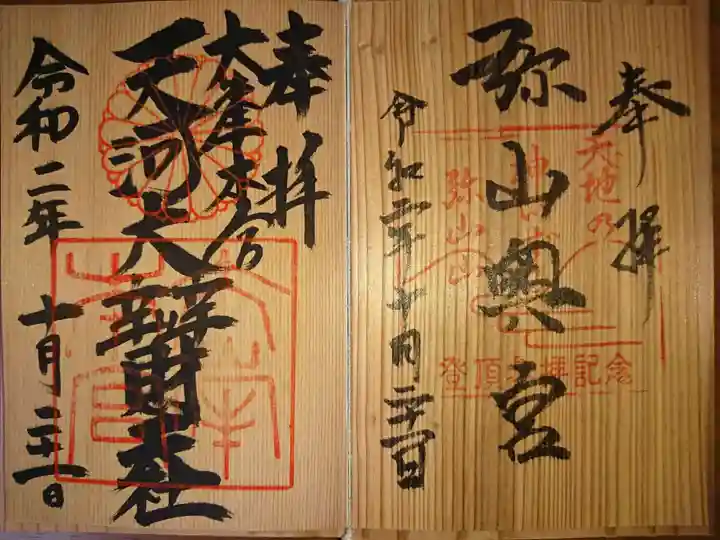 奉拝
弥山奥宮
令和二年十月二十一日
天地の
弥山
登頂
拝記念
奉拝
大峯本宮
天河大辨財天社
令和二年
十月二十一日